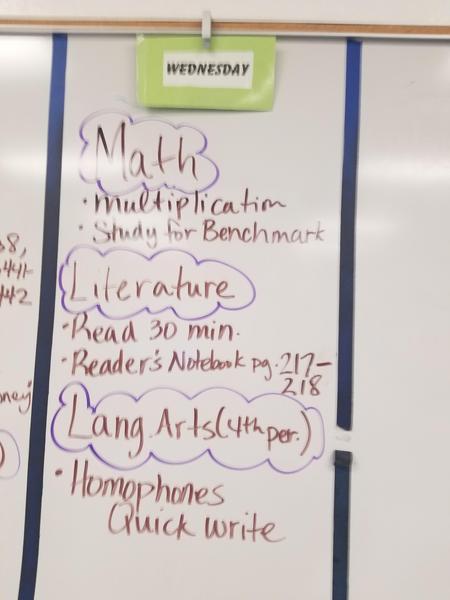 WEDNESDAY
Math
• Multiplication
• Study for Benchmark
Literature
• Read 30 min.
• Reader's Notebook pg. 217-
218
Lang. Arts (4th per.)
• Homophones
Quick write
442